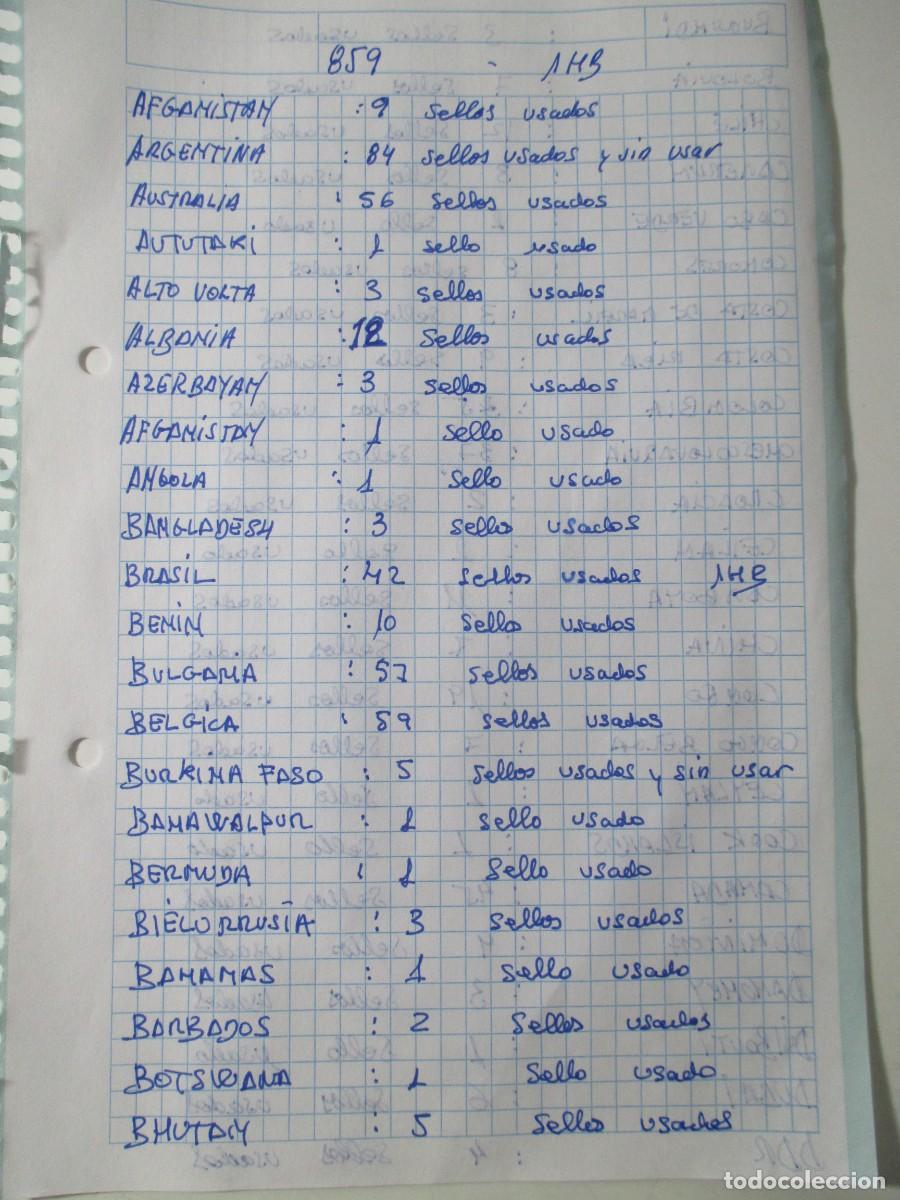 859 - 1HB
AFGANISTAN : 9 sellos usados
ARGENTINA : 84 sellos usados y sin usar
AUSTRALIA : 56 sellos usados
AUTUTAKI : 1 sello usado
ALTO VOLTA : 3 sellos usados
ALBANIA : 12 sellos usados
AZERBAYAN : 3 sellos usados
AFGANISTAN : 1 sello usado
ANGOLA : 1 sello usado
BANGLADESH : 3 sellos usados
BRASIL : 42 sellos usados 1HB
BENIN : 10 sellos usados
BULGARIA : 57 sellos usados
BELGICA : 59 sellos usados
BURKINA FASO : 5 sellos usados y sin usar
BAHAWALPUR : 1 sello usado
BERMUDA : 1 sello usado
BIELORRUSÍA : 3 sellos usados
BAHAMAS : 1 sello usado
BARBADOS : 2 sellos usados
BOTSWANA : 1 sello usado
BHUTAN : 5 sellos usados
todocoleccion